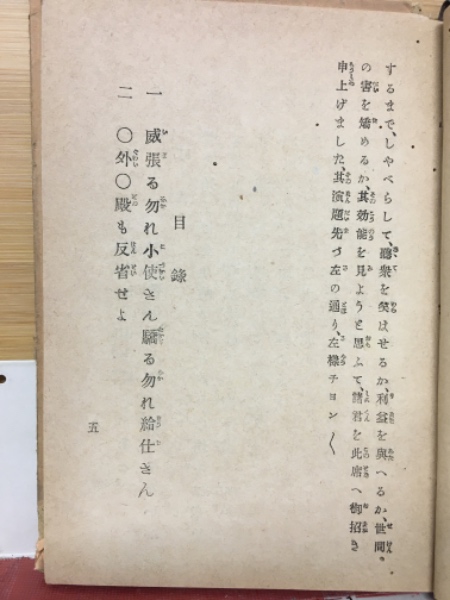 するまで、しやべらして、聽衆を笑はせるか、利益を與へるか、世間
の害を矯めるか、其効能を見ようと思ふて、諸君を此席へ御招き
申上げました、其演題先づ左の通り、左樣チヨン〳〵
目錄
一 威張る勿れ小使さん驕る勿れ給仕さん
二 〇外〇殿も反省せよ
五